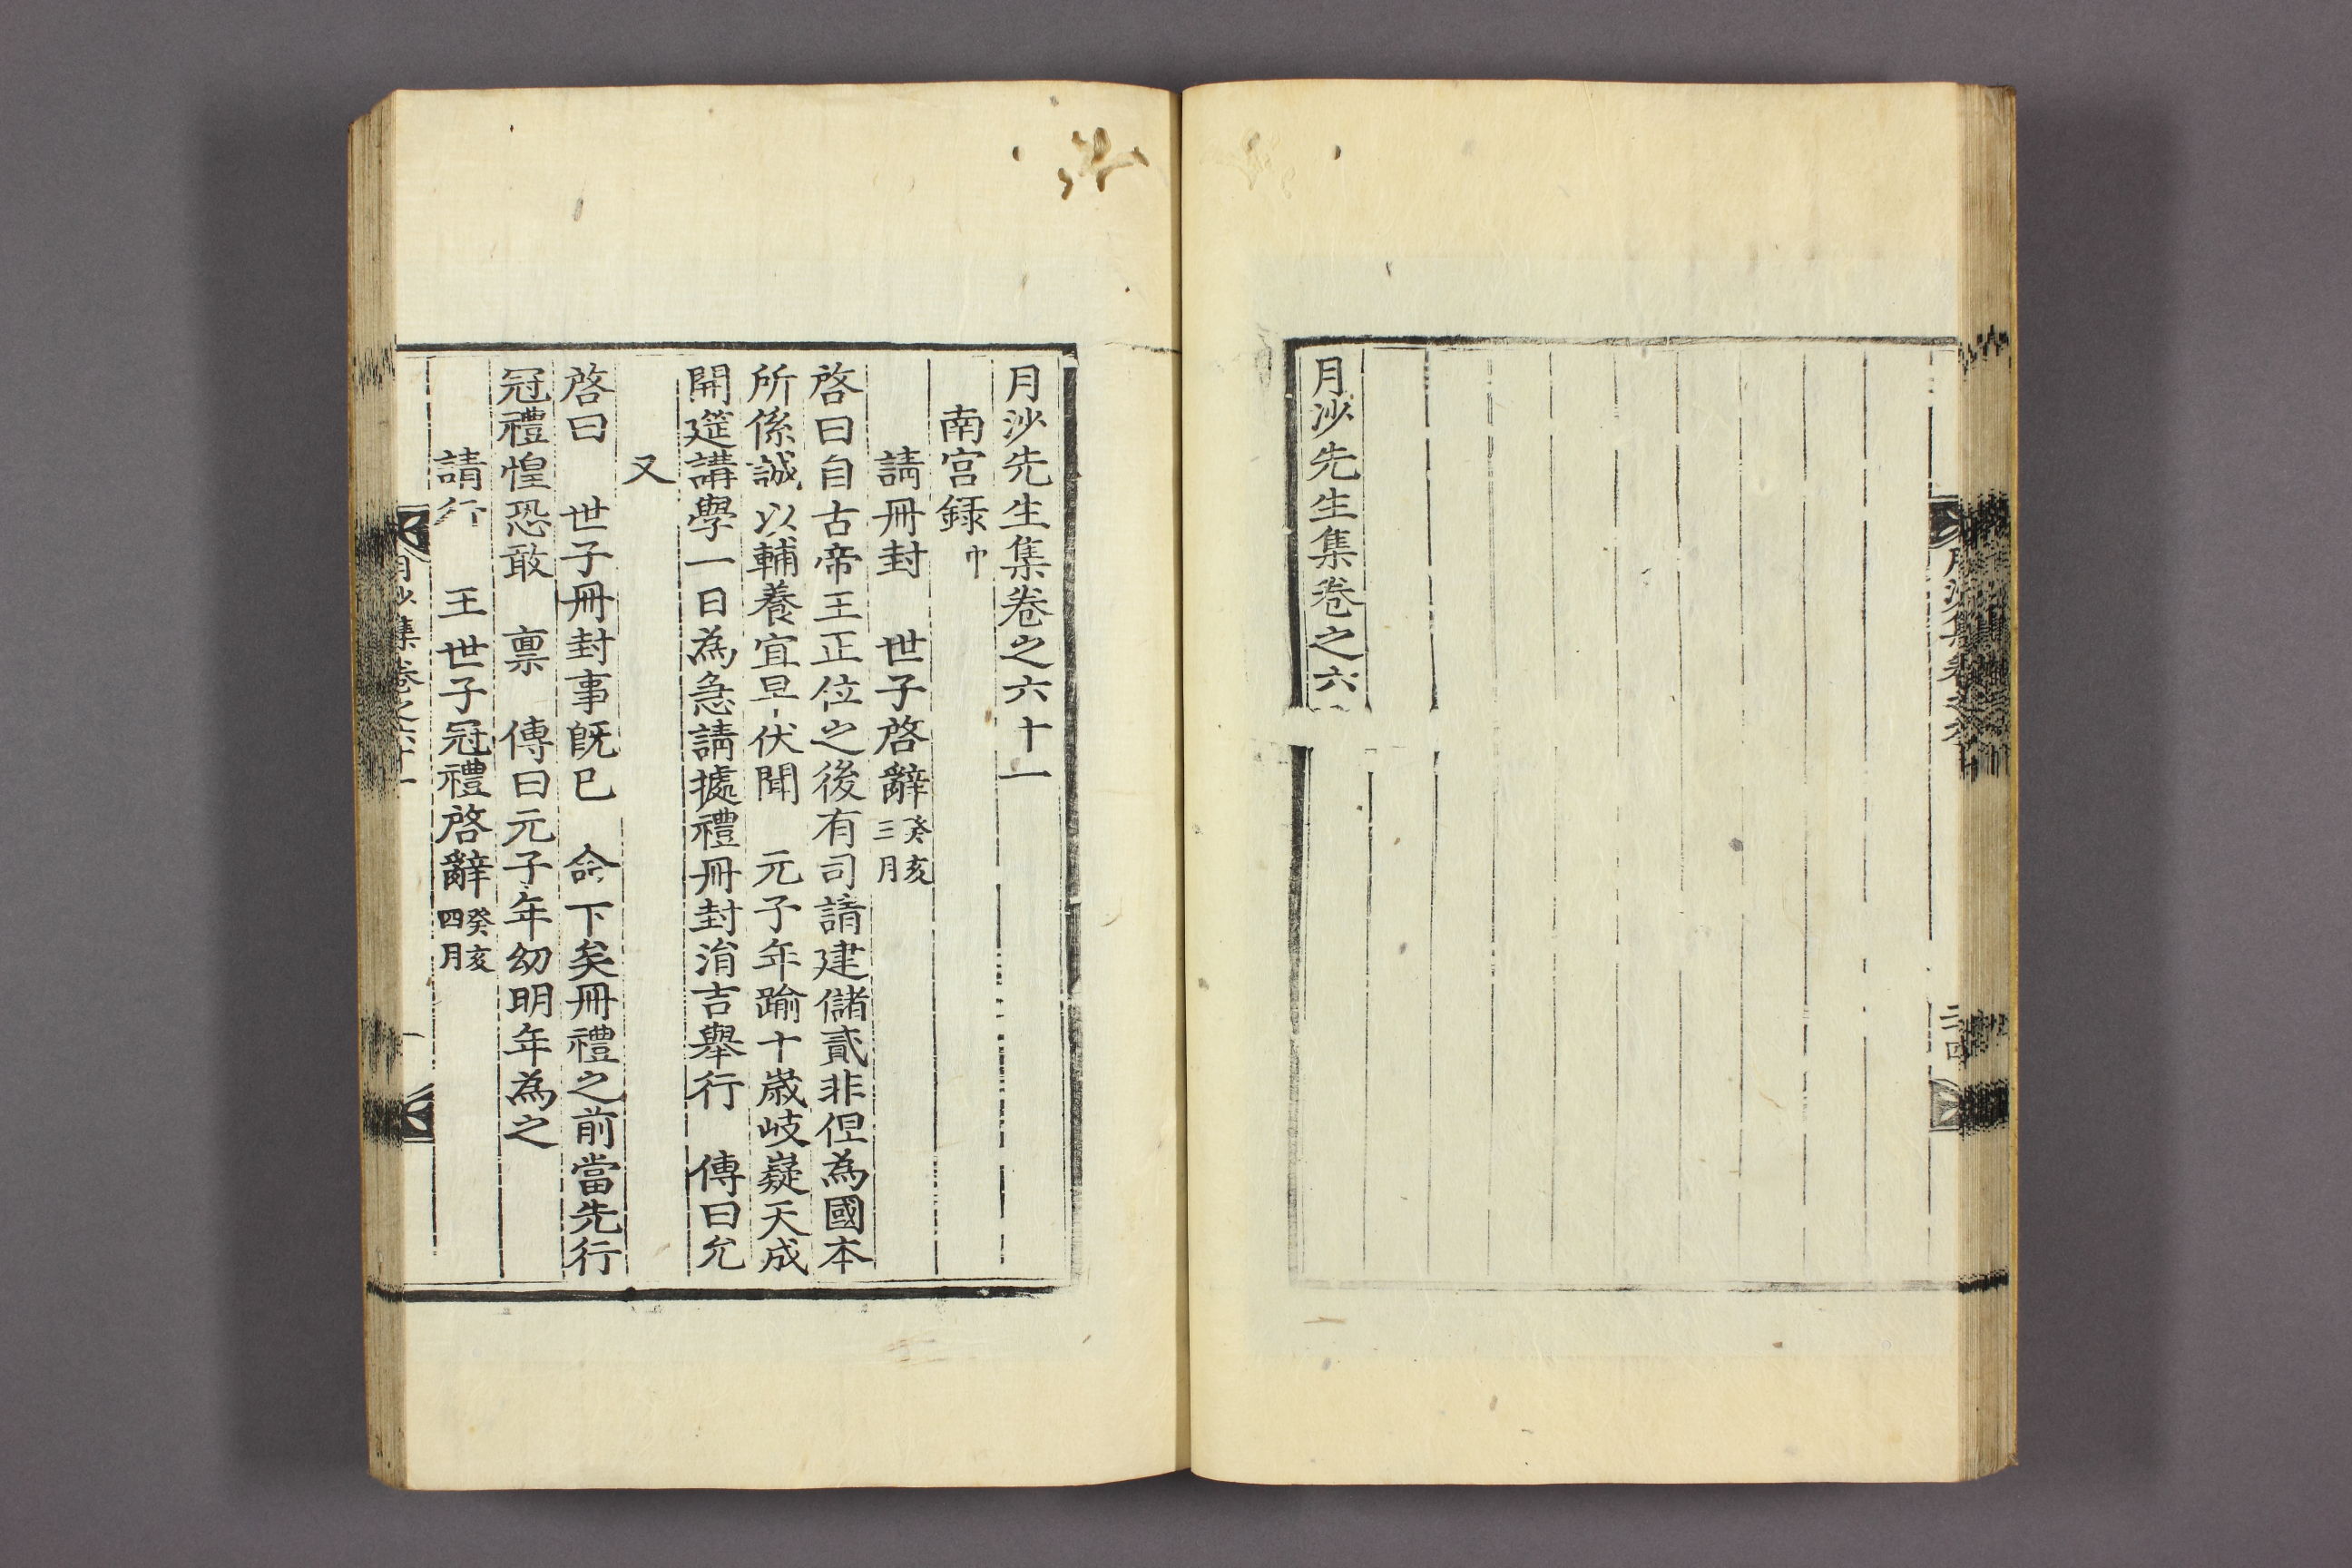 月沙先生集卷之六
月沙集卷之六十
二十四
月沙先生集卷之六十一
南宮録
請冊封　世子啓辭癸亥三月
啓曰自古帝王正位之後有司請建儲貳非但為國本
所係誠以輔養宜早伏聞　元子年踰十歲岐嶷天成
開筵講學一日為急請據禮冊封涓吉舉行　傳曰允
又
啓曰　世子冊封事既已　命下矣冊禮之前當先行
冠禮惶恐敢　禀　傳曰元子年幼明年為之
請行　王世子冠禮啓辭癸亥四月
月沙集卷之六十一
一